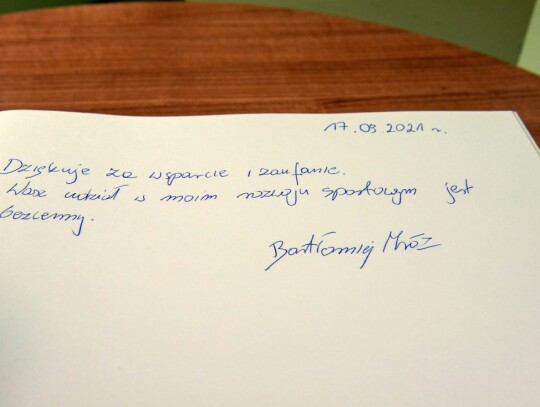 17.09.2021 r.
Dziękuję za wsparcie i zaufanie.
Wasz udział w moim rozwoju sportowym jest
bezcenny.
Bartłomiej Mróz